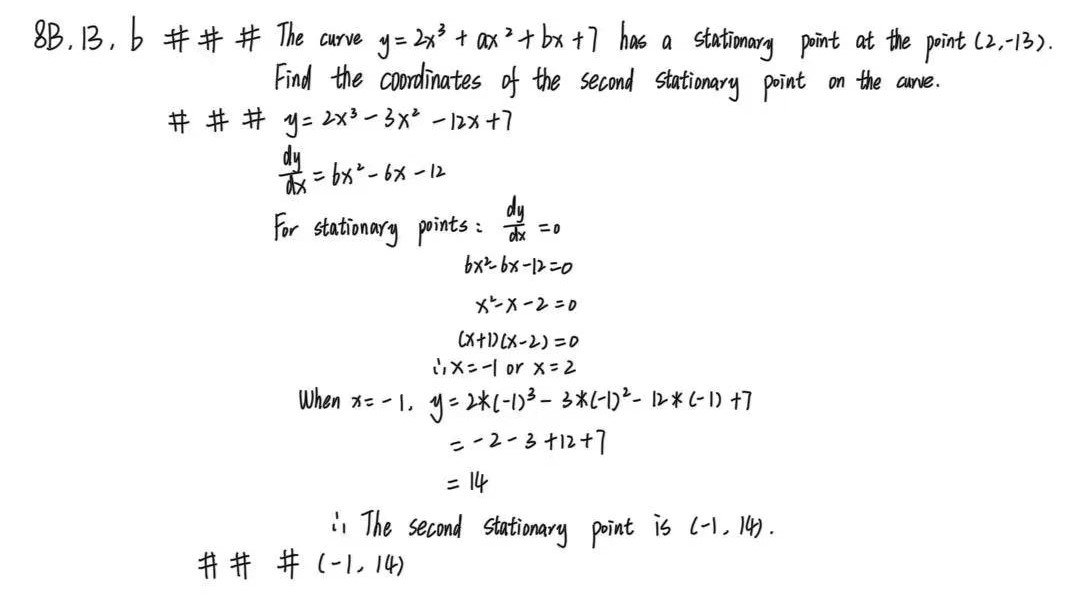 8B. 13. b # # # The curve y = 2x³ + ax² + bx + 7 has a stationary point at the point (2, -13).
Find the coordinates of the second stationary point on the curve.
# # # y = 2x³ - 3x² - 12x + 7
dy/dx = 6x² - 6x - 12
For stationary points: dy/dx = 0
6x² - 6x - 12 = 0
x² - x - 2 = 0
(x+1)(x-2) = 0
∴ x = -1 or x = 2
When x = -1, y = 2*(-1)³ - 3*(-1)² - 12*(-1) + 7
= -2 - 3 + 12 + 7
= 14
∴ The second stationary point is (-1, 14).
# # # (-1, 14)